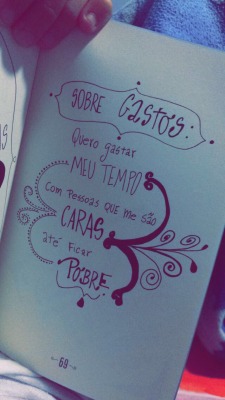 SOBRE GASTOS:
Quero gastar
MEU TEMPO
com pessoas que me são
CARAS
até ficar
POBRE
69